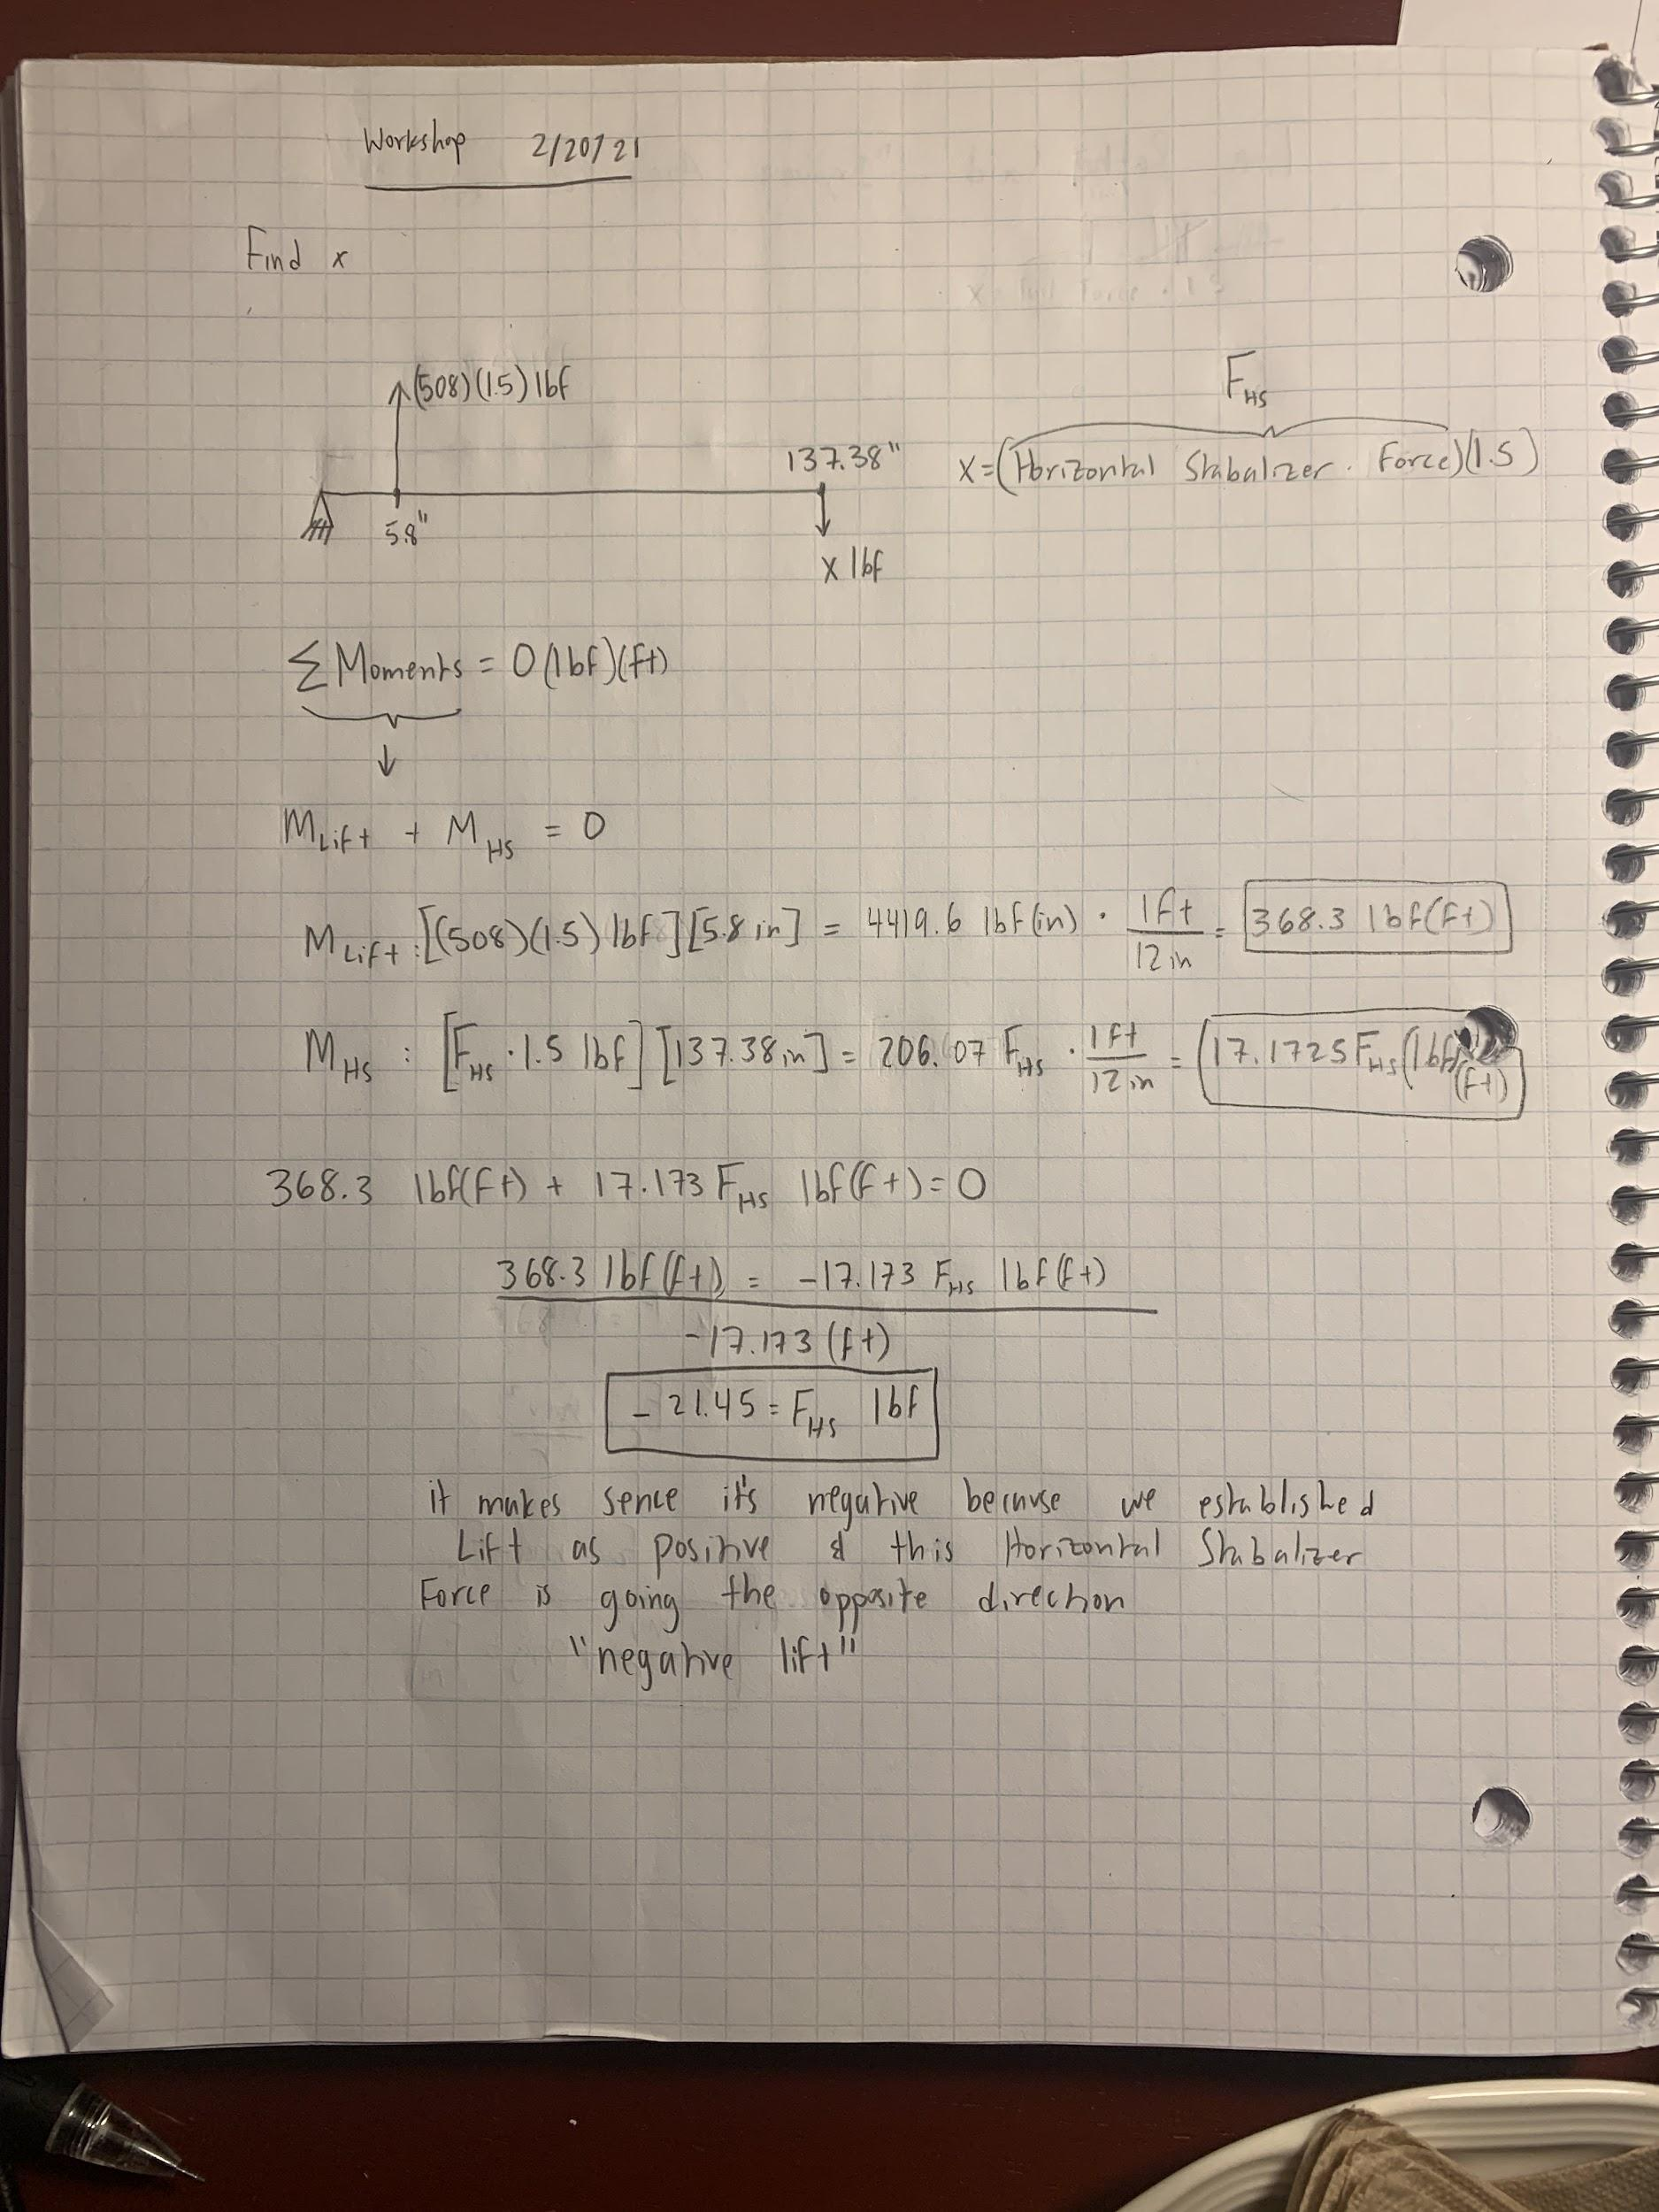 Workshop 2/20/21
Find x
(508)(1.5) lbf
F_HS
137.38"
x=(Horizontal Stabalizer Force)(1.5)
5.8"
x lbf
Σ Moments = 0(lbf)(ft)
↓
M_Lift + M_HS = 0
M_Lift : [(508)(1.5) lbf][5.8 in] = 4419.6 lbf(in) · 1ft/12in = 368.3 lbf(ft)
M_HS : [F_HS · 1.5 lbf][137.38in] = 206.07 F_HS · 1ft/12in = 17.1725 F_HS (lbf)(ft)
368.3 lbf(ft) + 17.173 F_HS lbf(ft)=0
368.3 lbf(ft) = -17.173 F_HS lbf(ft)
-17.173 (ft)
-21.45 = F_HS lbf
it makes sence it's negative because we established
Lift as positive & this Horizontal Stabalizer
Force is going the opposite direction
"negative lift"